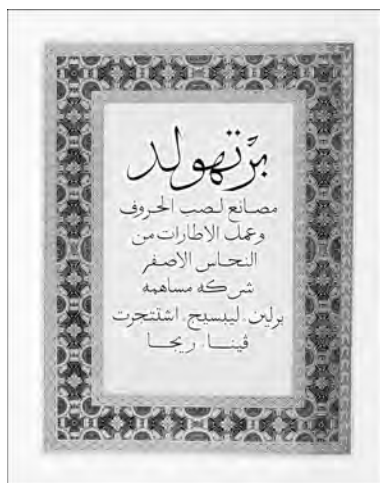 برتهولد
مصانع لصب الحروف
وعمل الاطارات من
النحاس الاصفر
شركه مساهمه
برلين . ليبسيج . اشتتجرت
ڤينا . ريجا